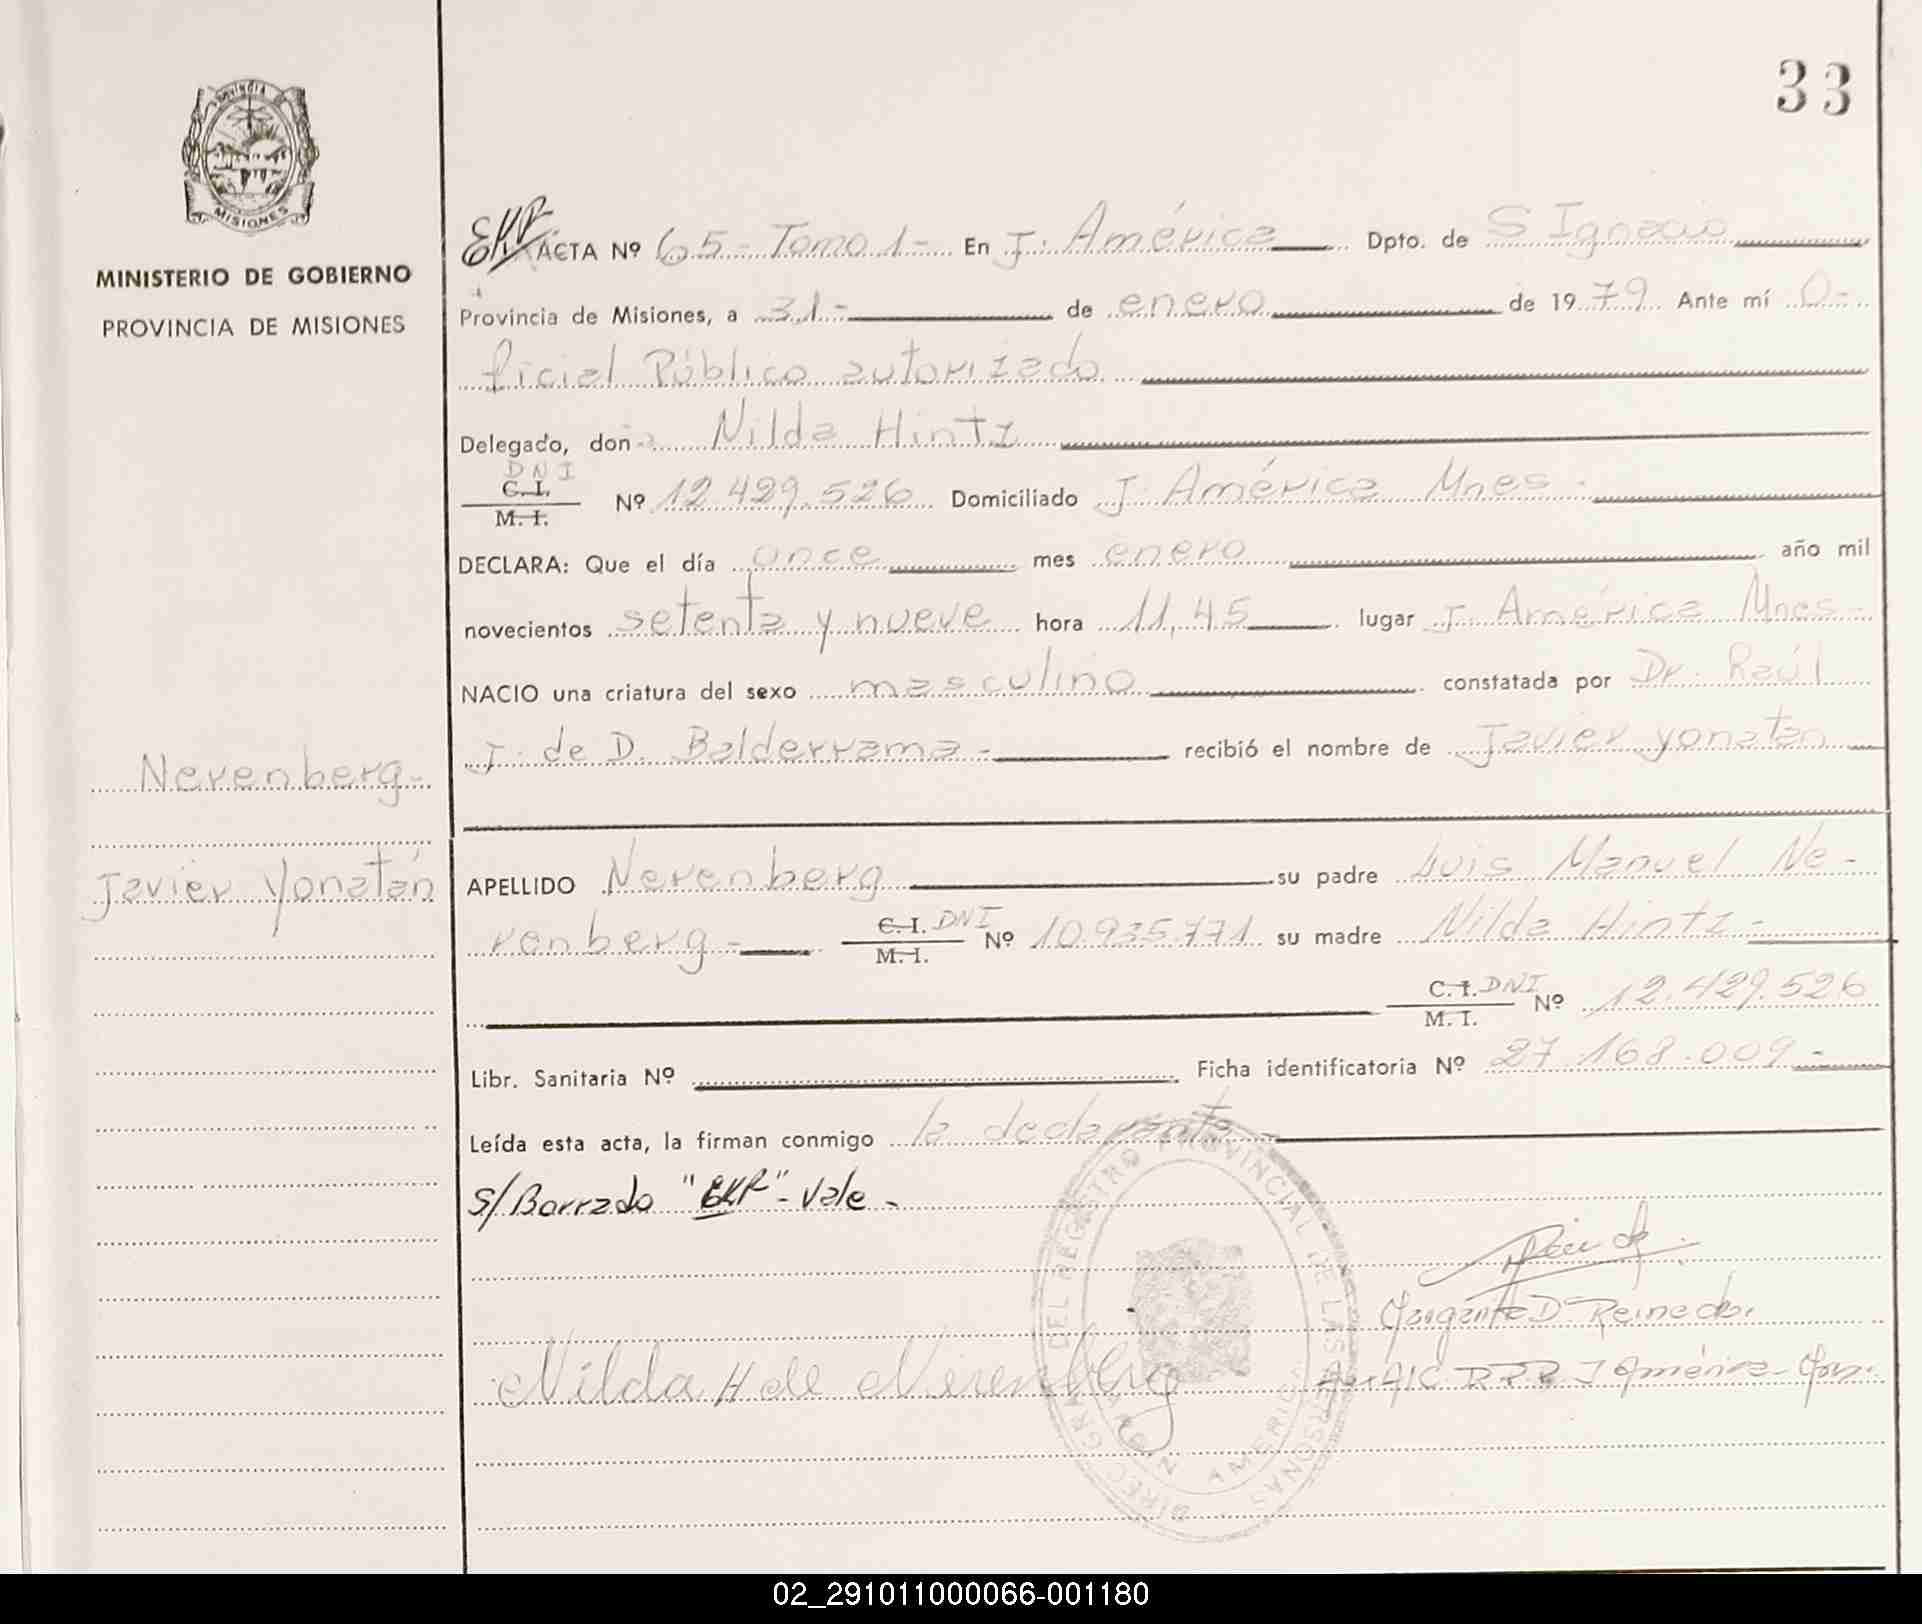 33
PROVINCIA DE
MISIONES
MINISTERIO DE GOBIERNO
PROVINCIA DE MISIONES
ACTA Nº 65- Tomo 1- En J. América Dpto. de S Ignacio
Provincia de Misiones, a 31- de enero de 1979 Ante mí O-
ficial Público autorizado
Delegado, doña Nilda Hintz
DNI
C. I.
M. I.
Nº 12.429.526 Domiciliado J. América Mnes -
DECLARA: Que el día once mes enero año mil
novecientos setenta y nueve hora 11,45 lugar J. América Mnes -
NACIO una criatura del sexo masculino constatada por Dr. Raúl
J. de D. Balderrama - recibió el nombre de Javier Yonatan
Nerenberg -
Javier Yonatán
APELLIDO Nerenberg su padre Luis Manuel Ne-
renberg - C. I. DNI M. I. Nº 10.935.771 su madre Nilda Hintz -
C. I. DNI M. I. Nº 12.429.526
Libr. Sanitaria Nº Ficha identificatoria Nº 27.168.009 -
Leída esta acta, la firman conmigo la declarante -
S/Borrado "" - Vale -
Nilda H de Nerenberg
D. Reinedo.
J América
DIREC. GRAL. DEL REGISTRO PROVINCIAL DE LAS PERSONAS
JARDIN AMERICA
02_291011000066-001180